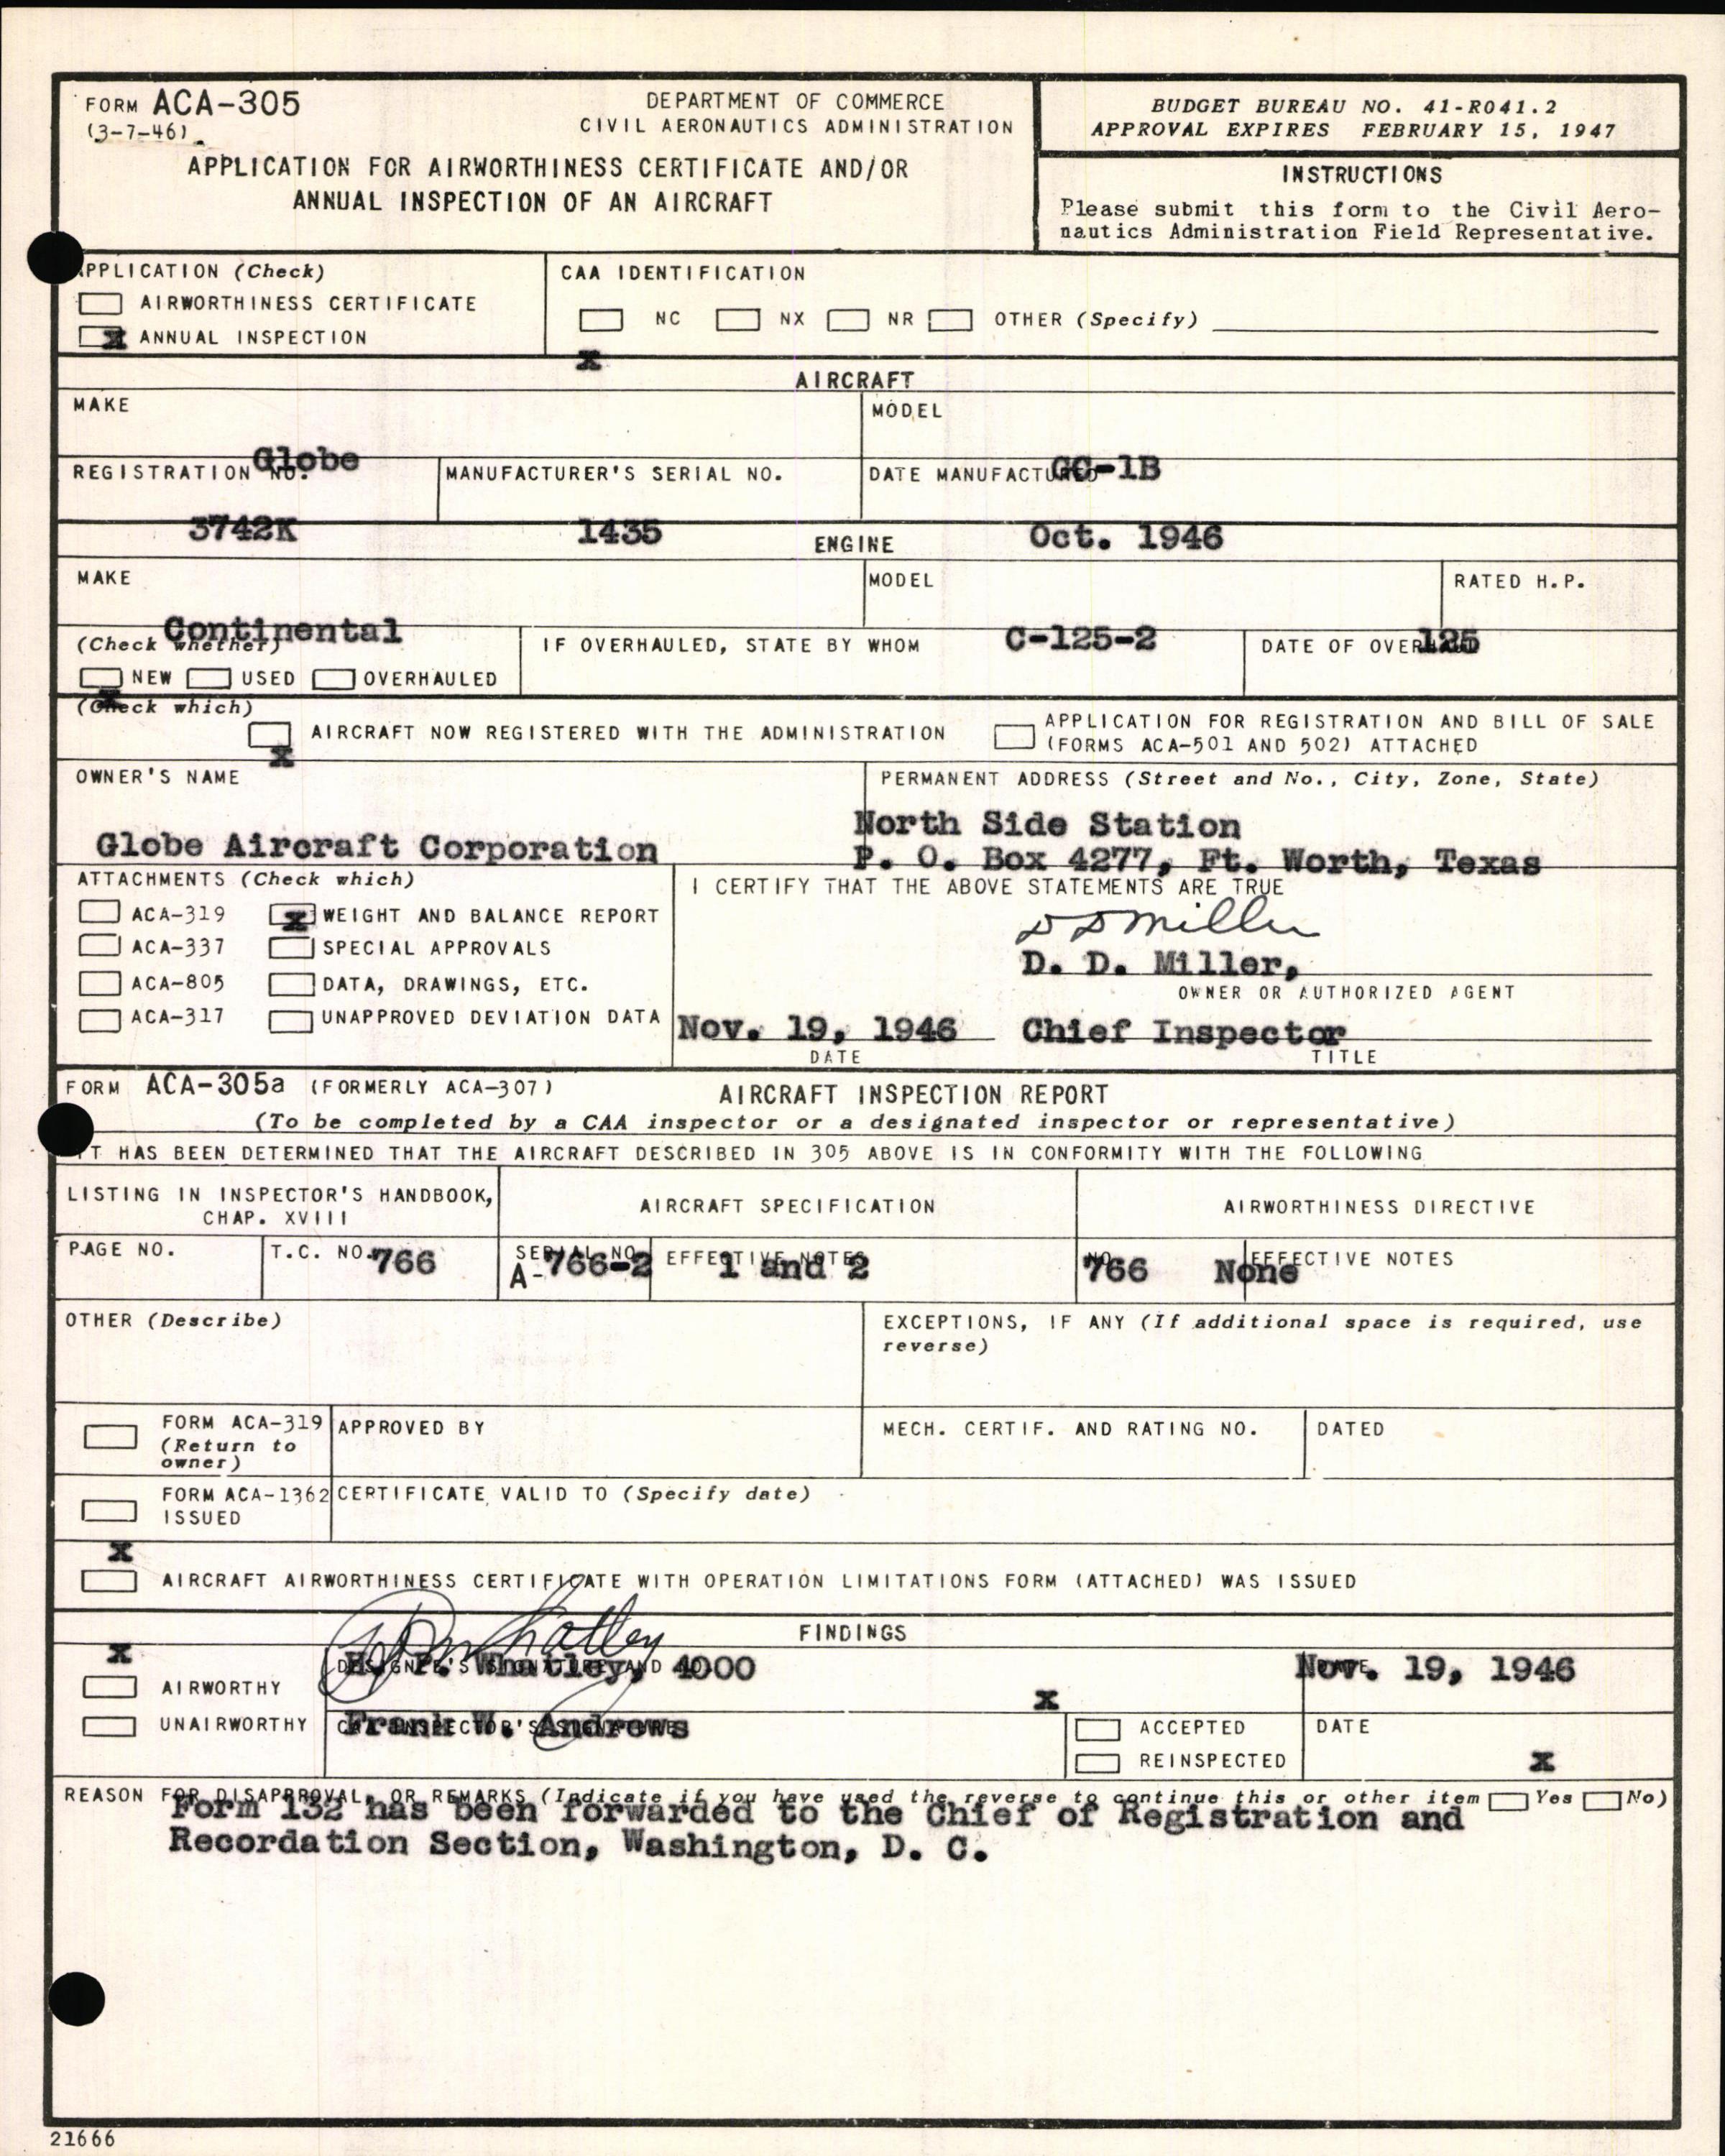 FORM ACA-305
(3-7-46)
DEPARTMENT OF COMMERCE
CIVIL AERONAUTICS ADMINISTRATION
APPLICATION FOR AIRWORTHINESS CERTIFICATE AND/OR
ANNUAL INSPECTION OF AN AIRCRAFT
BUDGET BUREAU NO. 41-R041.2
APPROVAL EXPIRES FEBRUARY 15, 1947
INSTRUCTIONS
Please submit this form to the Civil Aero-
nautics Administration Field Representative.
APPLICATION (Check)
AIRWORTHINESS CERTIFICATE
X ANNUAL INSPECTION
CAA IDENTIFICATION
NC NX NR OTHER (Specify)
X
AIRCRAFT
MAKE
Globe
MODEL
GC-1B
REGISTRATION NO.
3742K
MANUFACTURER'S SERIAL NO.
1435
DATE MANUFACTURED
Oct. 1946
ENGINE
MAKE
Continental
MODEL
C-125-2
RATED H.P.
125
(Check whether)
NEW USED OVERHAULED
X
IF OVERHAULED, STATE BY WHOM
DATE OF OVERHAUL
(Check which)
AIRCRAFT NOW REGISTERED WITH THE ADMINISTRATION
X
APPLICATION FOR REGISTRATION AND BILL OF SALE
(FORMS ACA-501 AND 502) ATTACHED
OWNER'S NAME
Globe Aircraft Corporation
PERMANENT ADDRESS (Street and No., City, Zone, State)
North Side Station
P. O. Box 4277, Ft. Worth, Texas
ATTACHMENTS (Check which)
ACA-319 X WEIGHT AND BALANCE REPORT
ACA-337 SPECIAL APPROVALS
ACA-805 DATA, DRAWINGS, ETC.
ACA-317 UNAPPROVED DEVIATION DATA
I CERTIFY THAT THE ABOVE STATEMENTS ARE TRUE
D D Miller
D. D. Miller,
OWNER OR AUTHORIZED AGENT
Nov. 19, 1946 Chief Inspector
DATE TITLE
FORM ACA-305a (FORMERLY ACA-307)
AIRCRAFT INSPECTION REPORT
(To be completed by a CAA inspector or a designated inspector or representative)
IT HAS BEEN DETERMINED THAT THE AIRCRAFT DESCRIBED IN 305 ABOVE IS IN CONFORMITY WITH THE FOLLOWING
LISTING IN INSPECTOR'S HANDBOOK,
CHAP. XVIII
AIRCRAFT SPECIFICATION
AIRWORTHINESS DIRECTIVE
PAGE NO.
T.C. NO. 766
SERIAL NO.
A-766-2
EFFECTIVE NOTES
1 and 2
NO.
766
EFFECTIVE NOTES
None
OTHER (Describe)
EXCEPTIONS, IF ANY (If additional space is required, use
reverse)
FORM ACA-319
(Return to
owner)
APPROVED BY
MECH. CERTIF. AND RATING NO.
DATED
FORM ACA-1362
ISSUED
CERTIFICATE VALID TO (Specify date)
X
AIRCRAFT AIRWORTHINESS CERTIFICATE WITH OPERATION LIMITATIONS FORM (ATTACHED) WAS ISSUED
FINDINGS
X
AIRWORTHY
UNAIRWORTHY
DESIGNEE'S SIGNATURE AND
Whatley, 4000
DATE
Nov. 19, 1946
CAA INSPECTOR'S SIGNATURE
Frank W. Andrews
X
ACCEPTED
REINSPECTED
DATE
X
REASON FOR DISAPPROVAL, OR REMARKS (Indicate if you have used the reverse to continue this or other item Yes No)
Form 132 has been forwarded to the Chief of Registration and
Recordation Section, Washington, D. C.
21666